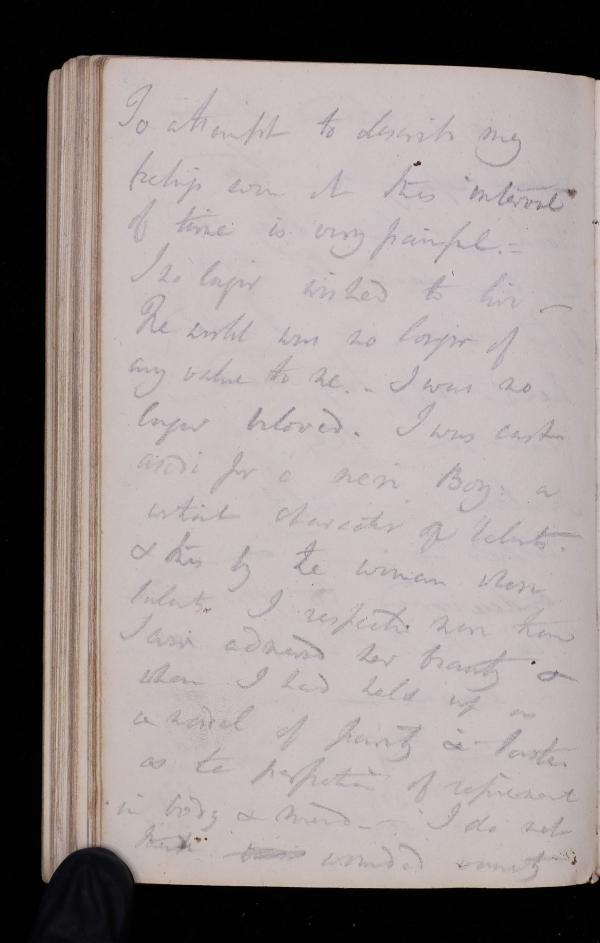 To attempt to describe my
feelings even at this interval
of time is very painful. -
I no longer wished to live -
The world was no longer of
any value to me. - I was no
longer beloved. I was cast
aside for a mere Boy a
without character or talents.
& this by the woman whose
talents I respected more than
I ever admired her beauty &
whom I had held up as
a model of purity &
as the perfection of refinement
in body & mind - I do not
think wounded vanity